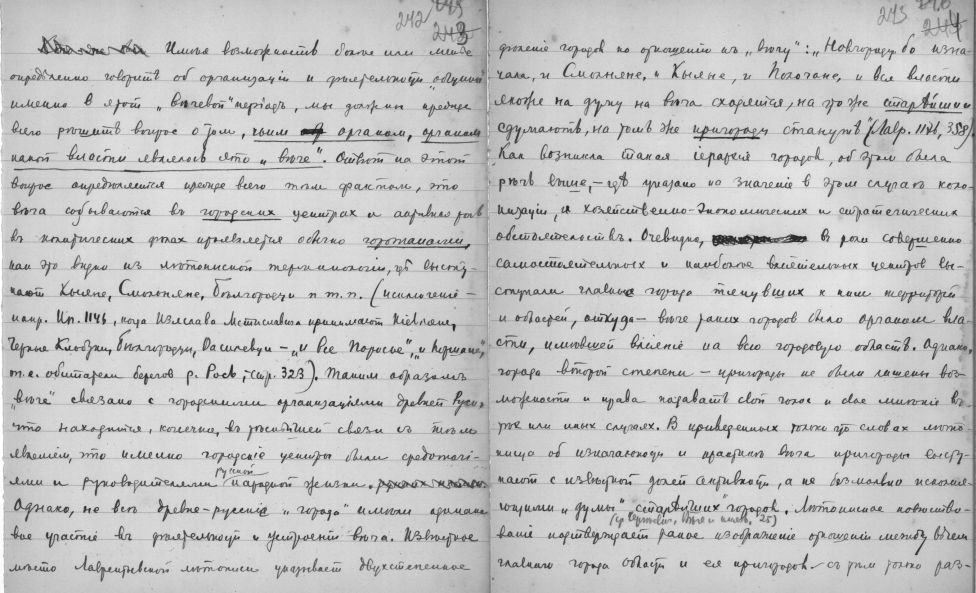 242
243
Имея возможность более или менее
определенно говорить об организации и деятельности общины
именно в этот „вечевой" период, мы должны прежде
всего решить вопрос о том, чьим органом, органом
какой власти являлось это „вече". Ответ на этот
вопрос определяется прежде всего тем фактом, что
веча собываются въ городских центрах и активная роль
въ политических делах проявляется обычно горожанами,
как это видно из летописной терминологии, где высту-
пают Кыяне, Смольняне, Белгородци и т. п. (исключение –
напр. Ип. 1146, когда Изяслава Мстиславича принимают Киевляне,
Черные Клобуки, Белгородци, Василевци – „и все Поросье",
т.е. обитатели берегов р. Рось, – стр. 323). Таким образомъ
„вече" связано с городскими организациями древней Руси,
что находится, конечно, въ теснейшей связи съ темъ
явлением, что именно городские центры были средоточи-
ями и руководителями русской народной жизни.
Однако, не все древне-русские „города" имели одинако-
вое участие въ деятельности и устроении веча. Известное
место Лаврентьевской летописи указывает двухстепенное
243
244
деление городов по отношению къ „вечу": „Новгородци бо изна-
чала, и Смольняне, и Кыяне, и Полочане, и вся власти
якоже на думу на веча сходятся, на что же старейшии
сдумають, на томъ же пригороды станутъ" (Лавр. 1176, 358)
Как возникла такая иерархия городов, об этом была
речь выше, – где указано на значение в этом случае коло-
низации, и хозяйственно-экономических и стратегических
обстоятельствъ. Очевидно, в роли совершенно
самостоятельных и наиболее влиятельных центров вы-
ступали главные города тянувших к ним территорий
и областей, откуда – вече таких городов было органом вла-
сти, имевшей влияние на всю городовую область. Однако,
города второй степени – пригороды не были лишены воз-
можности и права подавать свой голос и свое мнение въ
тех или иных случаях. В приведенных только что словах лето-
писца об изначальности и практике веча пригороды высту-
пают с известной долей активности, а не безмолвно исполня-
ющими „думы" „старейших" городов. Летописное повество-
(ср. Сергеевич, Вече и князь, 25)
вание подтверждает такое изображение отношений между вечем
главного города области и ея пригородов – съ тем только раз-